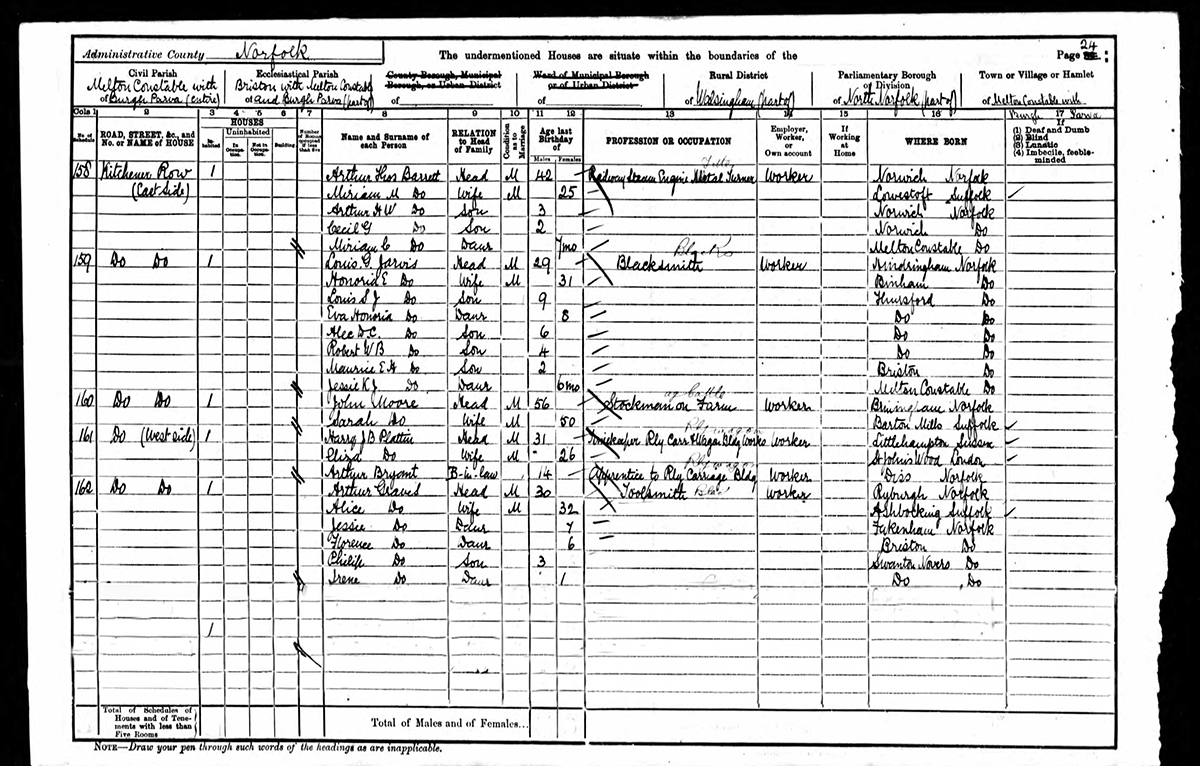 Administrative County Norfolk The undermentioned Houses are situate within the boundaries of the Page 24
Civil Parish Ecclesiastical Parish County Borough, Municipal Borough, or Urban District Ward of Municipal Borough or of Urban District Rural District Parliamentary Borough or Division Town or Village or Hamlet
of Melton Constable with Burgh Parva (entire) of Briston with Melton Constable and Burgh Parva (part of) of of of Walsingham (part of) of North Norfolk (part of) of Melton Constable with Burgh Parva
Cols 1 2 3 4 5 6 7 8 9 10 11 12 13 14 15 16 17
No. of Schedule ROAD, STREET, &c., and No. or NAME of HOUSE HOUSES Inhabited Uninhabited In Occupation. Not in Occupation. Building. Number of Rooms occupied if less than five Name and Surname of each Person RELATION to Head of Family Condition as to Marriage Age last Birthday of Males Females PROFESSION OR OCCUPATION Employer, Worker, or Own account If Working at Home WHERE BORN If (1) Deaf and Dumb (2) Blind (3) Lunatic (4) Imbecile, feeble-minded
158 Kitchener Row 1 Arthur Thos Barrett Head M 42 Railway Steam Engine Metal Turner Worker Norwich Norfolk
(East Side) Miriam M Do Wife M 25 Lowestoft Suffolk
Arthur H W Do Son 3 Norwich Norfolk
Cecil G Do Son 2 Norwich Do
Miriam C Do Daur 7mo Melton Constable Do
159 Do Do 1 Louis G Jarvis Head M 29 Blacksmith Worker Hindringham Norfolk
Honoria E Do Wife M 31 Binham Do
Louis S J Do Son 9 Thursford Do
Eva Honoria Do Daur 8 Do Do
Alec D C Do Son 6 Do Do
Robert W B Do Son 4 Do Do
Maurice E H Do Son 2 Briston Do
Jessie K J Do Daur 6mo Melton Constable Do
160 Do Do 1 John Moore Head M 56 Stockman on Farm Worker Briningham Norfolk
Sarah Do Wife M 50 Barton Mills Suffolk
161 Do (West side) 1 Harry J B Plattin Head M 31 Timekeeper Rly Carr & Wagon Bldg Works Worker Littlehampton Sussex
Eliza Do Wife M 26 St Johns Wood London
Arthur Bryant B-in-law 14 Apprentice to Rly Carriage Bldg Worker Diss Norfolk
162 Do Do 1 Arthur Graves Head M 30 Toolsmith Worker Ryburgh Norfolk
Alice Do Wife M 32 Ashbocking Suffolk
Jessie Do Daur 7 Fakenham Norfolk
Florence Do Daur 6 Briston Do
Philip Do Son 3 Swanton Novers Do
Irene Do Daur 1 Do Do
1
Total of Schedules of Houses and of Tenements with less than Five Rooms Total of Males and of Females...
NOTE—Draw your pen through such words of the headings as are inapplicable.